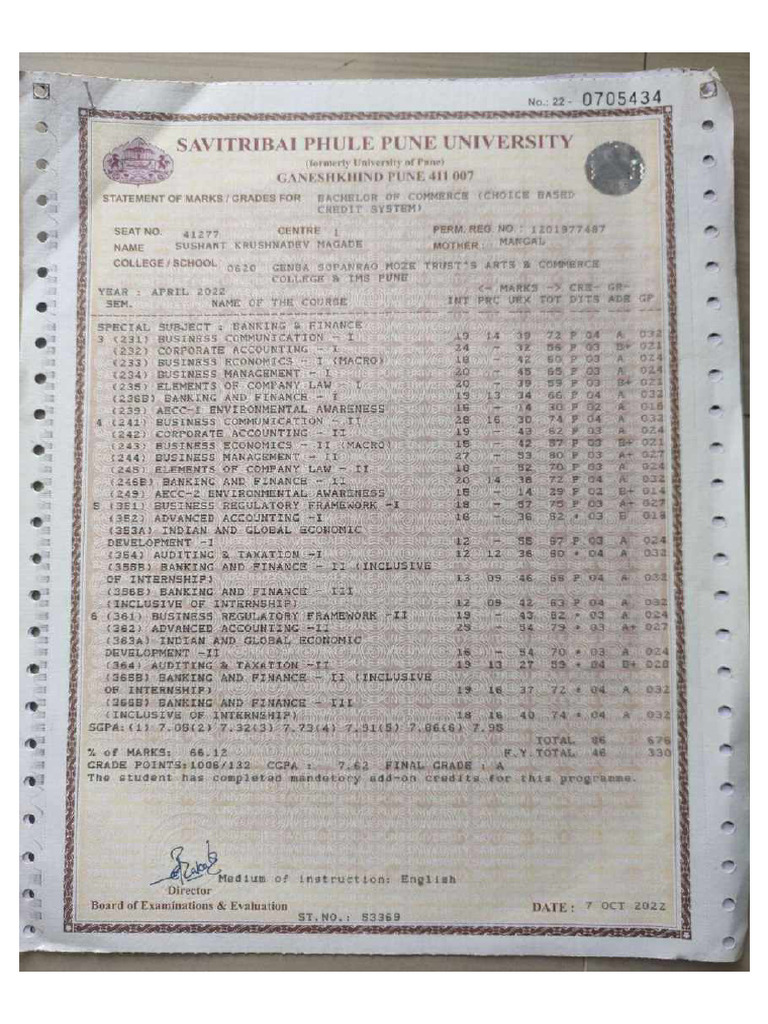 No.: 22 - 0705434
SAVITRIBAI PHULE PUNE UNIVERSITY
(formerly University of Pune)
GANESHKHIND PUNE 411 007
STATEMENT OF MARKS / GRADES FOR BACHELOR OF COMMERCE (CHOICE BASED
CREDIT SYSTEM)
SEAT NO. 41277 CENTRE 1 PERM. REG NO : 1201977487
NAME SUSHANT KRUSHNADEV MAGADE MOTHER : MANGAL
COLLEGE / SCHOOL 0620 GENBA SOPANRAO MOZE TRUST'S ARTS & COMMERCE
COLLEGE & IMS PUNE
YEAR : APRIL 2022 <- MARKS -> CRE- GR-
SEM. NAME OF THE COURSE INT PRC UEX TOT DITS ADE GP
SPECIAL SUBJECT : BANKING & FINANCE
3 (231) BUSINESS COMMUNICATION - I 19 14 39 72 P 04 A 032
(232) CORPORATE ACCOUNTING - I 24 - 32 56 P 03 B+ 021
(233) BUSINESS ECONOMICS - I (MACRO) 18 - 42 60 P 03 A 024
(234) BUSINESS MANAGEMENT - I 20 - 45 65 P 03 A 024
(235) ELEMENTS OF COMPANY LAW - I 20 - 39 59 P 03 B+ 021
(236B) BANKING AND FINANCE - I 19 13 34 66 P 04 A 032
(239) AECC-1 ENVIRONMENTAL AWARENESS 16 - 14 30 P 02 A 016
4 (241) BUSINESS COMMUNICATION - II 28 16 30 74 P 04 A 032
(242) CORPORATE ACCOUNTING - II 19 - 43 62 P 03 A 024
(243) BUSINESS ECONOMICS - II (MACRO) 15 - 42 57 P 03 B+ 021
(244) BUSINESS MANAGEMENT - II 27 - 53 80 P 03 A+ 027
(245) ELEMENTS OF COMPANY LAW - II 18 - 52 70 P 03 A 024
(246B) BANKING AND FINANCE - II 20 14 38 72 P 04 A 032
(249) AECC-2 ENVIRONMENTAL AWARENESS 15 - 14 29 P 02 B+ 014
5 (351) BUSINESS REGULATORY FRAMEWORK -I 18 - 57 75 P 03 A+ 027
(352) ADVANCED ACCOUNTING -I 16 - 36 52 * 03 B 018
(353A) INDIAN AND GLOBAL ECONOMIC
DEVELOPMENT -I 12 - 55 67 P 03 A 024
(354) AUDITING & TAXATION -I 12 12 36 60 * 04 A 032
(355B) BANKING AND FINANCE - II (INCLUSIVE
OF INTERNSHIP) 13 09 46 68 P 04 A 032
(356B) BANKING AND FINANCE - III
(INCLUSIVE OF INTERNSHIP) 12 09 42 63 P 04 A 032
6 (361) BUSINESS REGULATORY FRAMEWORK -II 19 - 43 62 * 03 A 024
(362) ADVANCED ACCOUNTING -II 25 - 54 79 * 03 A+ 027
(363A) INDIAN AND GLOBAL ECONOMIC
DEVELOPMENT -II 16 - 54 70 * 03 A 024
(364) AUDITING & TAXATION -II 19 13 27 59 * 04 B+ 028
(365B) BANKING AND FINANCE - II (INCLUSIVE
OF INTERNSHIP) 19 16 37 72 * 04 A 032
(366B) BANKING AND FINANCE - III
(INCLUSIVE OF INTERNSHIP) 18 16 40 74 * 04 A 032
SGPA:(1) 7.05(2) 7.32(3) 7.73(4) 7.91(5) 7.86(6) 7.95
TOTAL 86 676
% of MARKS: 66.12 F.Y.TOTAL 46 330
GRADE POINTS:1006/132 CGPA : 7.62 FINAL GRADE : A
The student has completed mandatory add-on credits for this programme.
Medium of instruction: English
Director
Board of Examinations & Evaluation DATE : 7 OCT 2022
ST.NO.: 53369